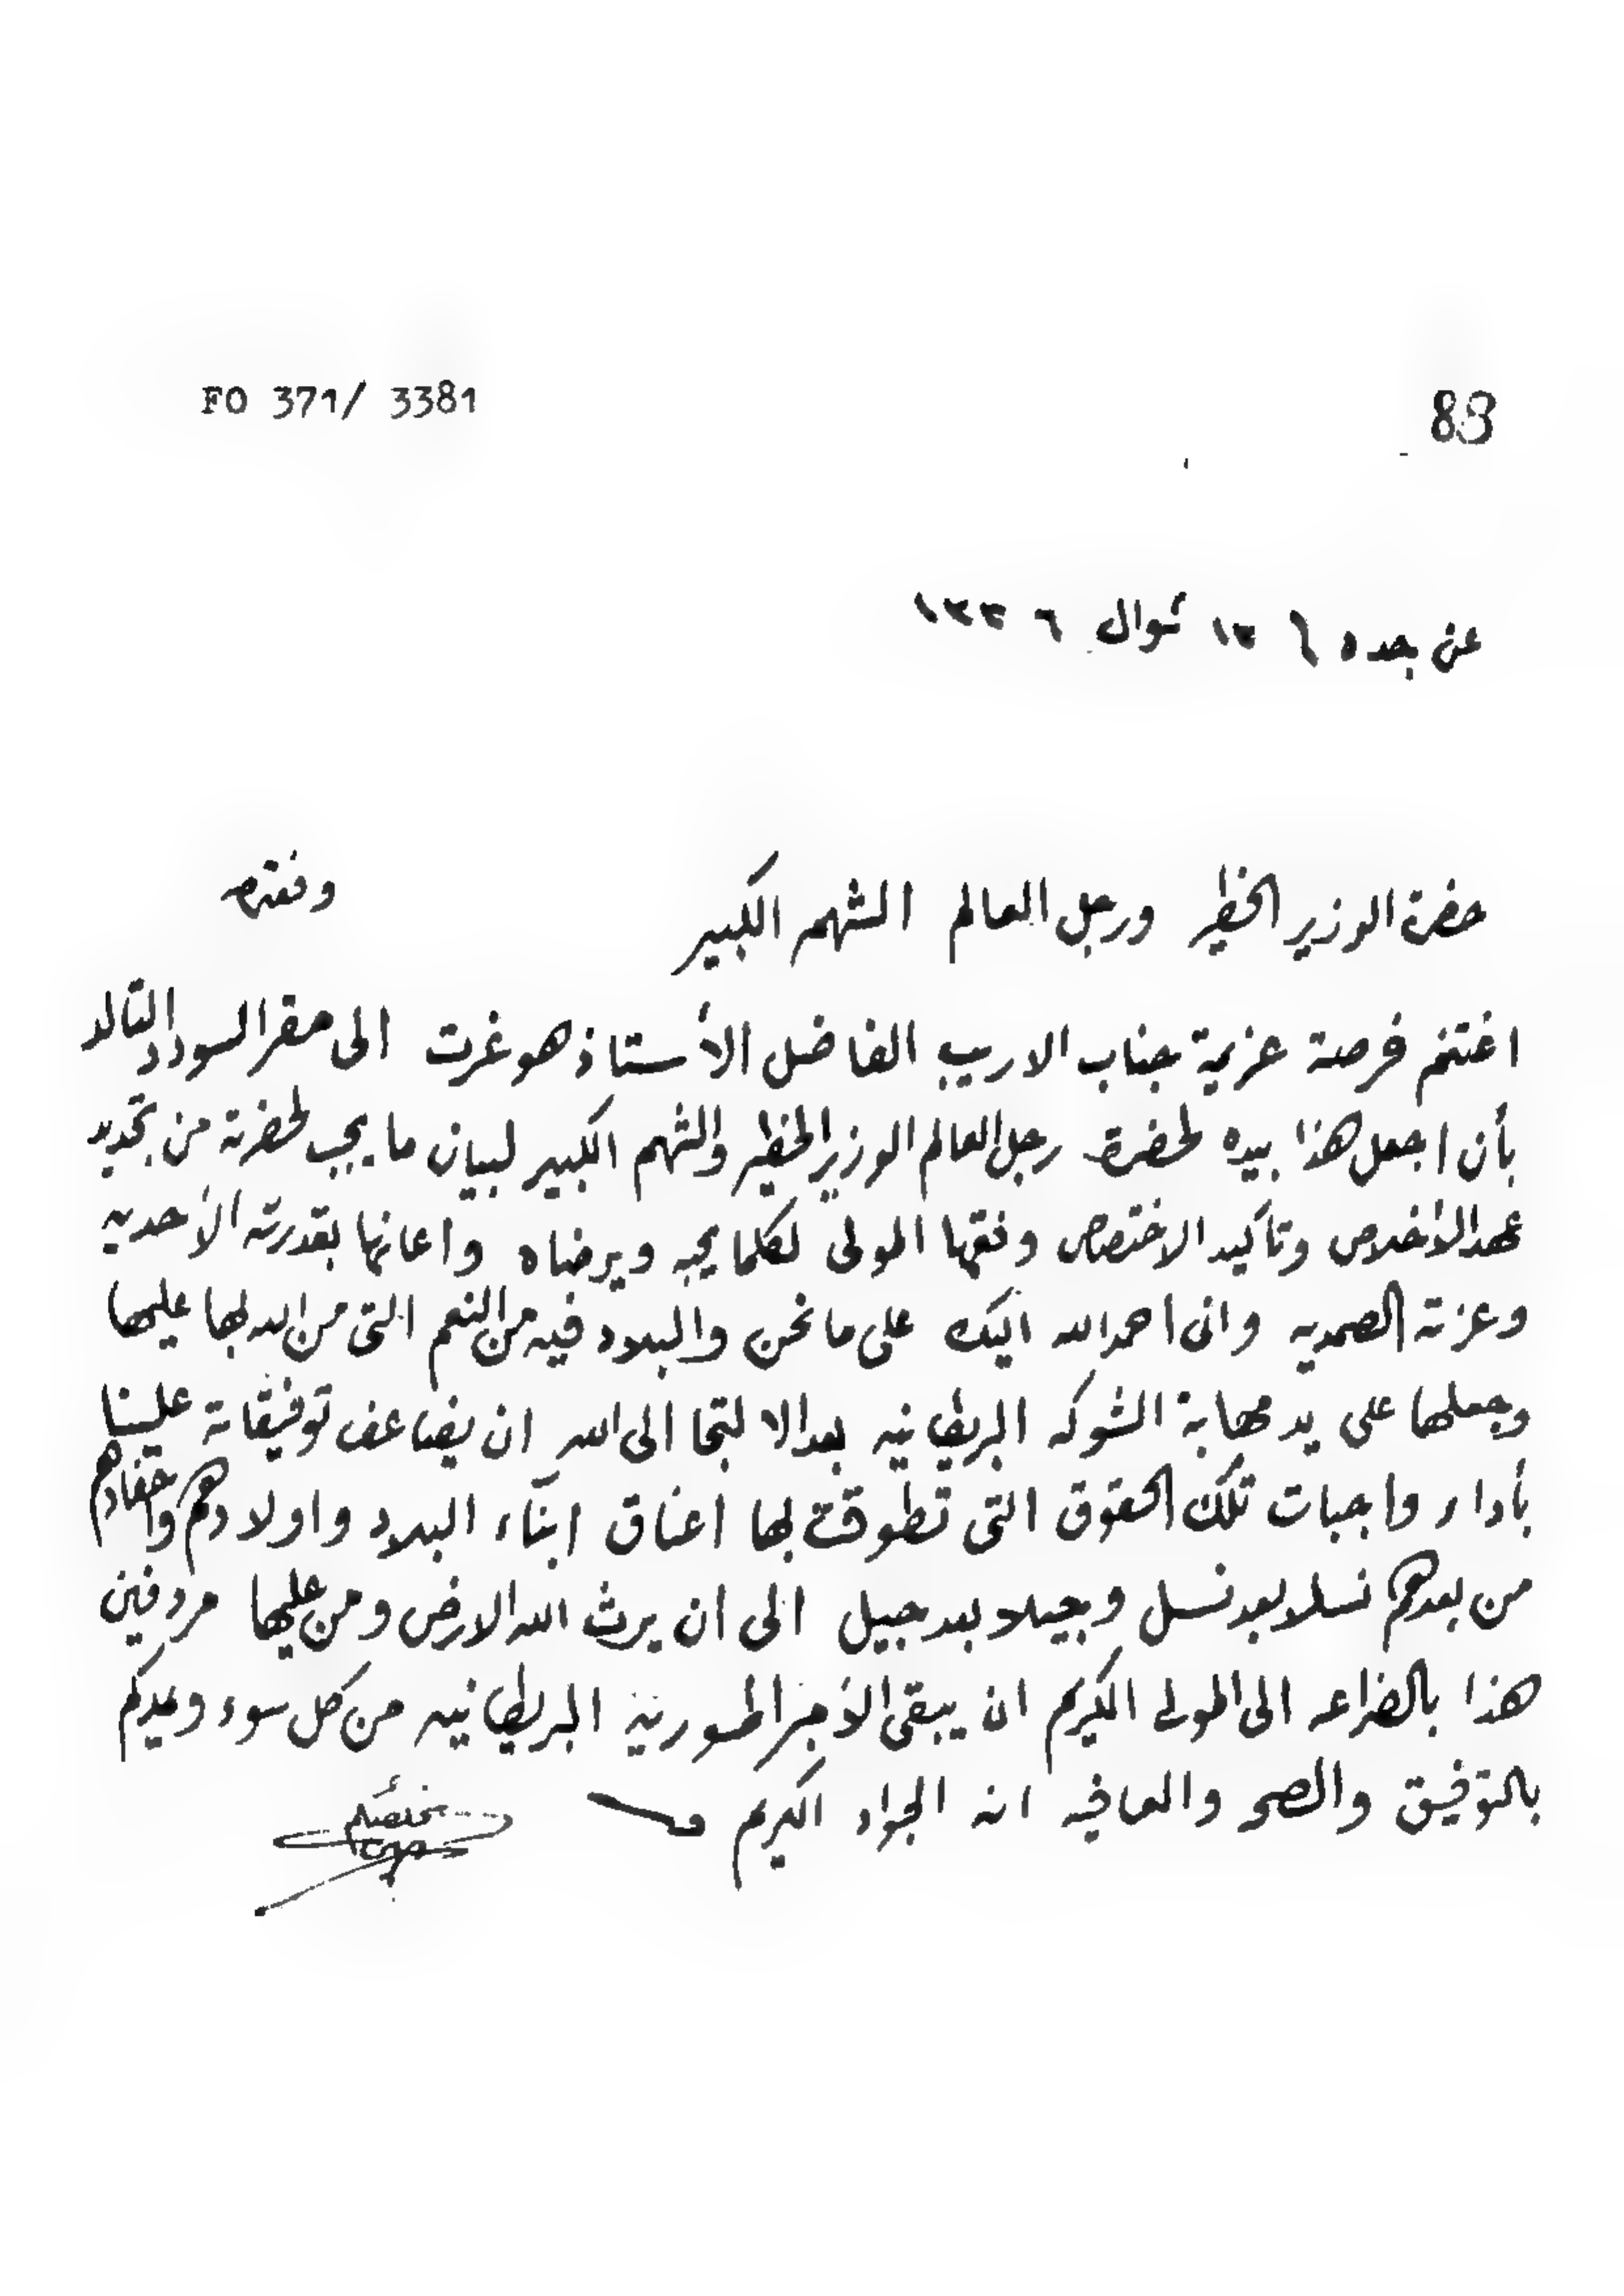 FO 371/ 3381
88
عن جده ١٢ شوال ١٣٣٦
حضرة الوزير الخطير ورجل العالم الشهم الكبير
اغتنم فرصة عزيمة جناب الاريب الفاضل الأستاذ هوغرت الى مقر السودد التالد
بأن اجعل هذا بيده لحضرة رجل العالم الوزير الخطير والشهم الكبير لبيان ما يجب لحضرته من تجديد
عهد الأخلاص وتأكيد الاختصاص وفقها المولى لكلما يحبه ويرضاه واعانها بقدرته الأحديه
وعزته الصمديه وانى احمد الله اليك على ما نحن والبلاد فيه من النعم التى من الله بها عليها
وجعلها على يد مهابة الشوكه البريطانيه بعد الالتجا الى الله ان يضاعف توفيقاته علينا
بأداء واجبات تلك الحقوق التى تطوقت بها اعناق ابنآء البلاد واولادهم واحفادهم
من بعدهم نسلا بعد نسل وجيلا بعد جيل الى ان يرث الله الارض ومن عليها مردفين
هذا بالضراعه الى المولى الكريم ان يبقى الأمبراطورية البريطانيه من كل سوء ويمدكم
بالتوفيق والصحه والعافيه انه الجواد الكريم